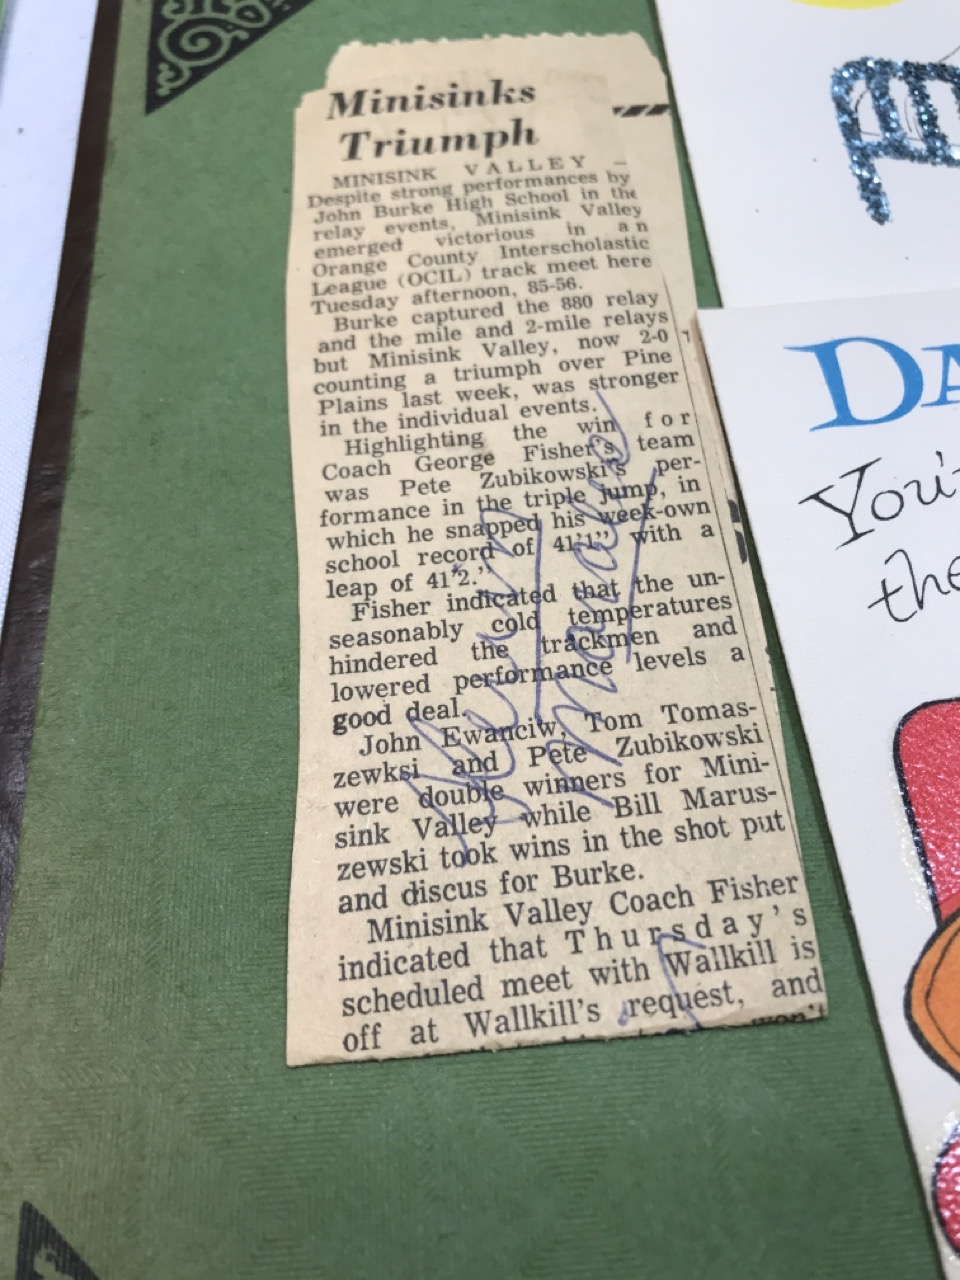 Minisinks
Triumph
MINISINK VALLEY –
Despite strong performances by
John Burke High School in the
relay events, Minisink Valley
emerged victorious in an
Orange County Interscholastic
League (OCIL) track meet here
Tuesday afternoon, 85-56.
Burke captured the 880 relay
and the mile and 2-mile relays
but Minisink Valley, now 2-0
counting a triumph over Pine
Plains last week, was stronger
in the individual events.
Highlighting the win for
Coach George Fisher's team
was Pete Zubikowski's per-
formance in the triple jump, in
which he snapped his week-own
school record of 41'1" with a
leap of 41'2."
Fisher indicated that the un-
seasonably cold temperatures
hindered the trackmen and
lowered performance levels a
good deal.
John Ewanciw, Tom Tomas-
zewksi and Pete Zubikowski
were double winners for Mini-
sink Valley while Bill Marus-
zewski took wins in the shot put
and discus for Burke.
Minisink Valley Coach Fisher
indicated that Thursday's
scheduled meet with Wallkill is
off at Wallkill's request, and
won't
DA
You'
the